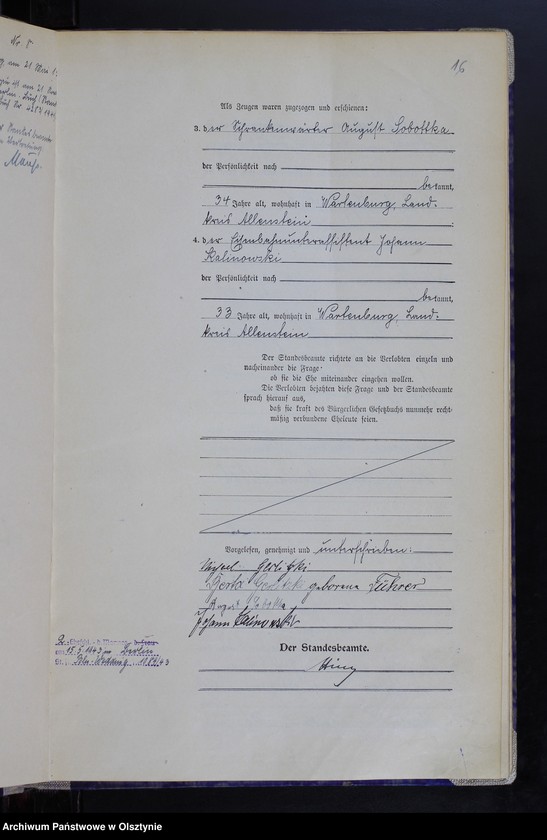 16
Als Zeugen waren zugezogen und erschienen:
3. der Schrankenwärter August Sobottka
der Persönlichkeit nach
bekannt,
34 Jahre alt, wohnhaft in Wartenburg, Land-
kreis Allenstein
4. der Eisenbahnunterassistent Johann
Kalinowski
der Persönlichkeit nach
bekannt,
33 Jahre alt, wohnhaft in Wartenburg, Land-
kreis Allenstein
Der Standesbeamte richtete an die Verlobten einzeln und
nacheinander die Frage:
ob sie die Ehe miteinander eingehen wollen.
Die Verlobten bejahten diese Frage und der Standesbeamte
sprach hierauf aus,
daß sie kraft des Bürgerlichen Gesetzbuchs nunmehr recht-
mäßig verbundene Eheleute seien.
Vorgelesen, genehmigt und unterschrieben:
geborene Führer
August Sobottka
Johann Kalinowski
Der Standesbeamte.
15.5.1943 in Berlin
Archiwum Państwowe w Olsztynie